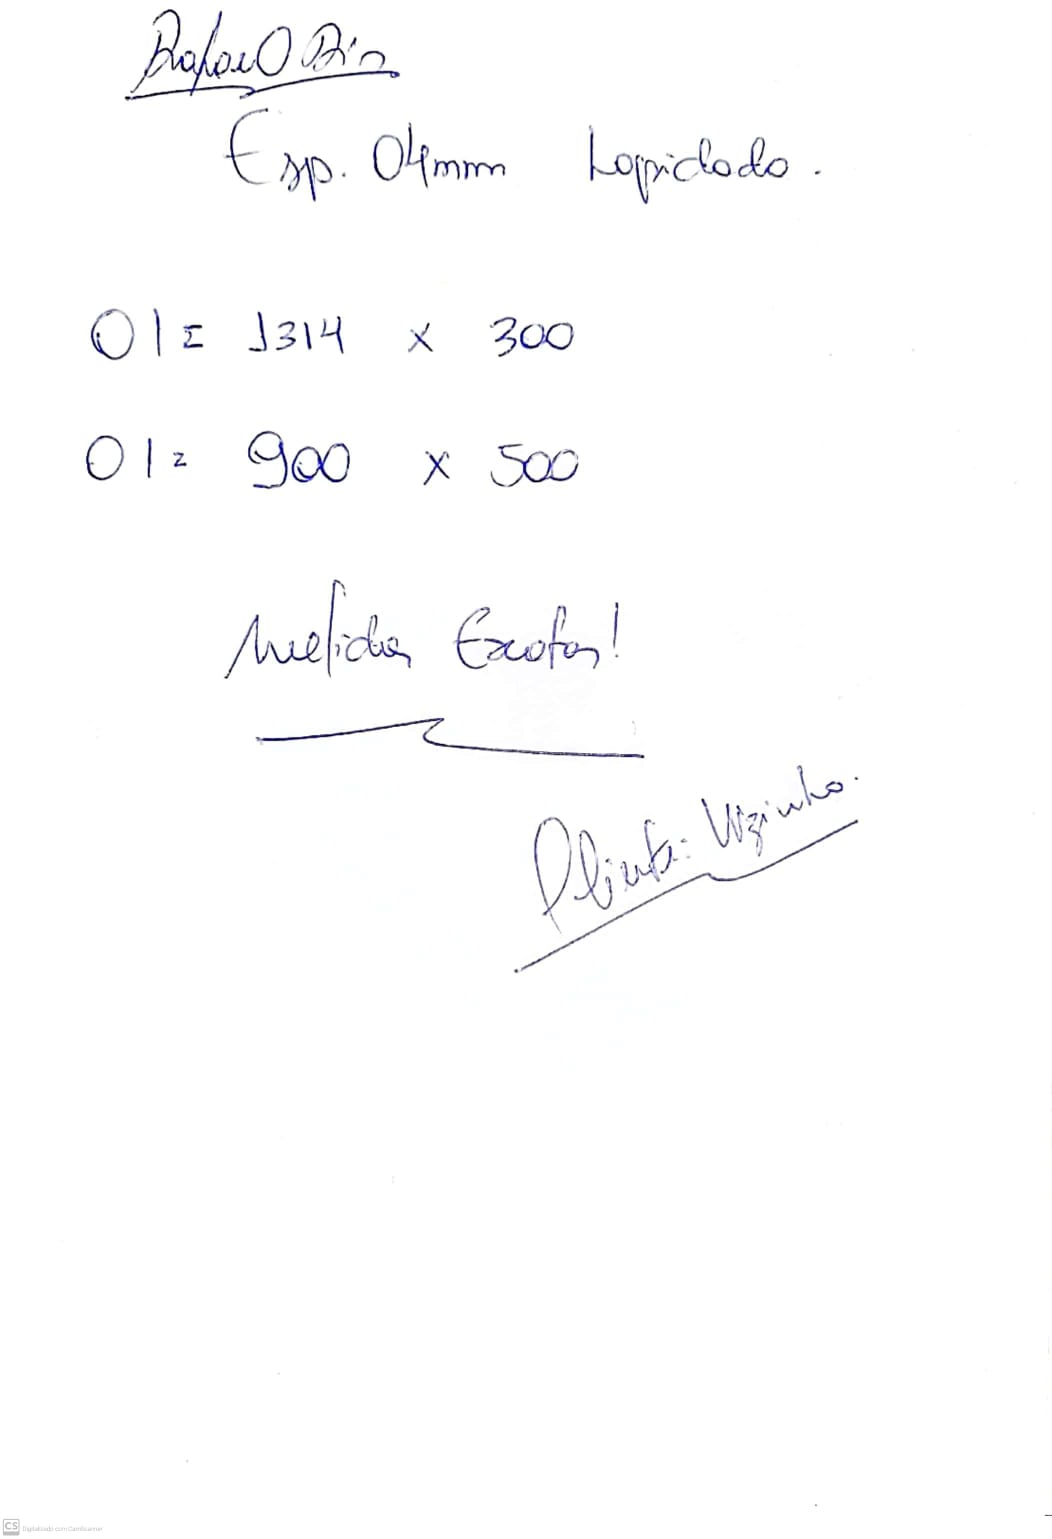 Rafael Bin
Esp. 04mm Lapidado.
01= 1314 x 300
01= 900 x 500
Medidas Exatas!
Cliente: Vizinho.
CS Digitalizado com CamScanner